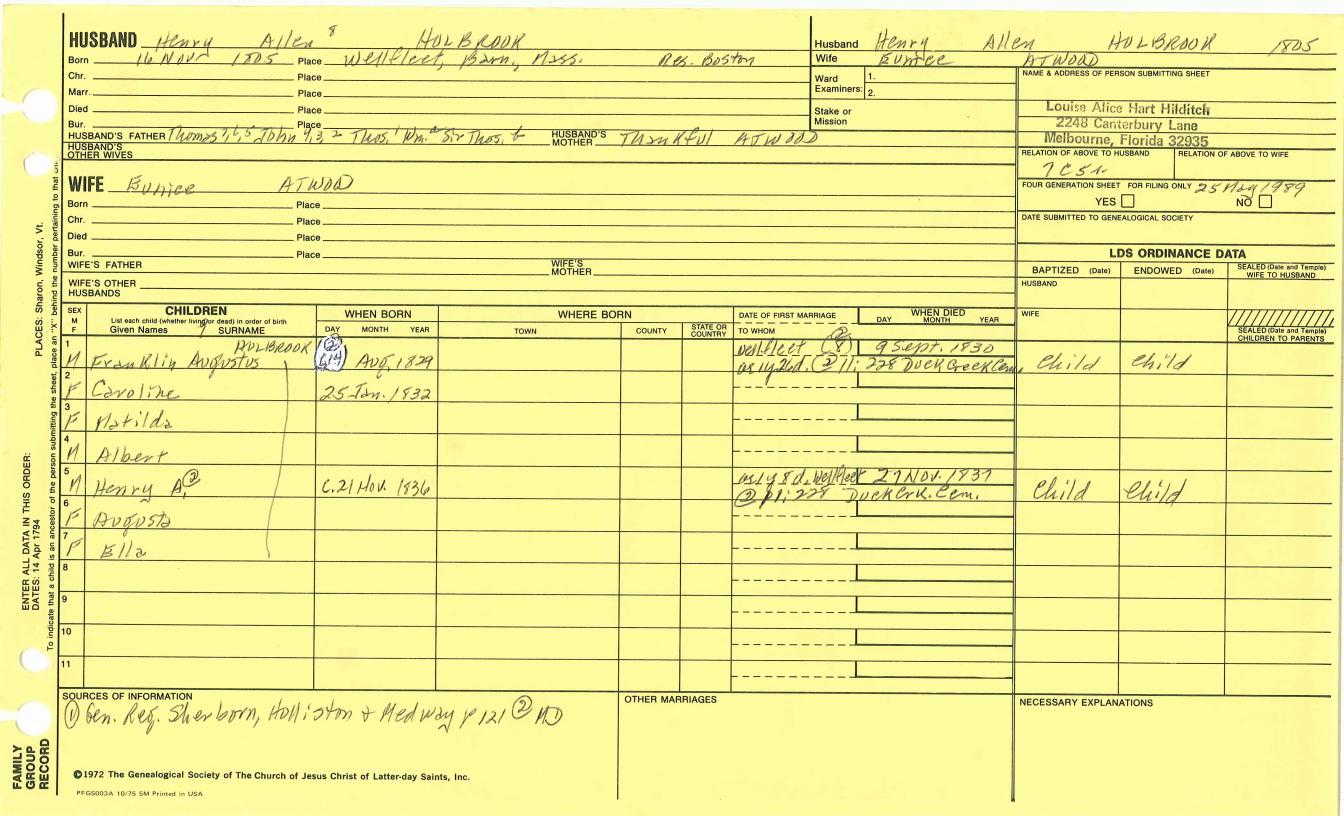 HUSBAND Henry Allen 8 HOLBROOK
Born 16 Nov 1805 Place Wellfleet, Barn., Mass. Res. Boston
Chr. Place
Marr. Place
Died Place
Bur. Place
HUSBAND'S FATHER Thomas John Thos. Wm. Sir Thos. HUSBAND'S MOTHER Thankful ATWOOD
HUSBAND'S OTHER WIVES
WIFE Eunice ATWOOD
Born Place
Chr. Place
Died Place
Bur. Place
WIFE'S FATHER WIFE'S MOTHER
WIFE'S OTHER HUSBANDS
Husband Henry Allen HOLBROOK 1805
Wife Eunice ATWOOD
Ward Examiners: 1.
2.
Stake or Mission
NAME & ADDRESS OF PERSON SUBMITTING SHEET
Louise Alice Hart Hilditch
2248 Canterbury Lane
Melbourne, Florida 32935
RELATION OF ABOVE TO HUSBAND RELATION OF ABOVE TO WIFE
7C5r
FOUR GENERATION SHEET FOR FILING ONLY 25 May 1989
YES NO
DATE SUBMITTED TO GENEALOGICAL SOCIETY
LDS ORDINANCE DATA
BAPTIZED (Date) ENDOWED (Date) SEALED (Date and Temple) WIFE TO HUSBAND
HUSBAND
WIFE
SEALED (Date and Temple) CHILDREN TO PARENTS
SEX M F
CHILDREN
List each child (whether living or dead) in order of birth
Given Names SURNAME
WHEN BORN
DAY MONTH YEAR
WHERE BORN
TOWN COUNTY STATE OR COUNTRY
DATE OF FIRST MARRIAGE
TO WHOM
WHEN DIED
DAY MONTH YEAR
1 HOLBROOK 2 Wellfleet 8 9 Sept. 1830
M Franklin Augustus 14 Aug. 1829 as 1y 26d. 2 11: 228 Duck Creek Cem. Child Child
2
F Caroline 25 Jan. 1832
3
F Matilda
4
M Albert
5 as 1y 8d. Wellfleet 27 Nov. 1837
M Henry A. 2 c. 21 Nov. 1836 2 p 11: 228 Duck Crk. Cem. Child Child
6
F Augusta
7
F Ella
8
9
10
11
SOURCES OF INFORMATION
1 Gen. Reg. Sherborn, Holliston & Medway p 121 2 MD
OTHER MARRIAGES
NECESSARY EXPLANATIONS
©1972 The Genealogical Society of The Church of Jesus Christ of Latter-day Saints, Inc.
PFGS003A 10/75 5M Printed in USA
ENTER ALL DATA IN THIS ORDER:
DATES: 14 Apr 1794
PLACES: Sharon, Windsor, Vt.
To indicate that a child is an ancestor of the person submitting the sheet, place an "X" behind the number pertaining to that
FAMILY GROUP RECORD